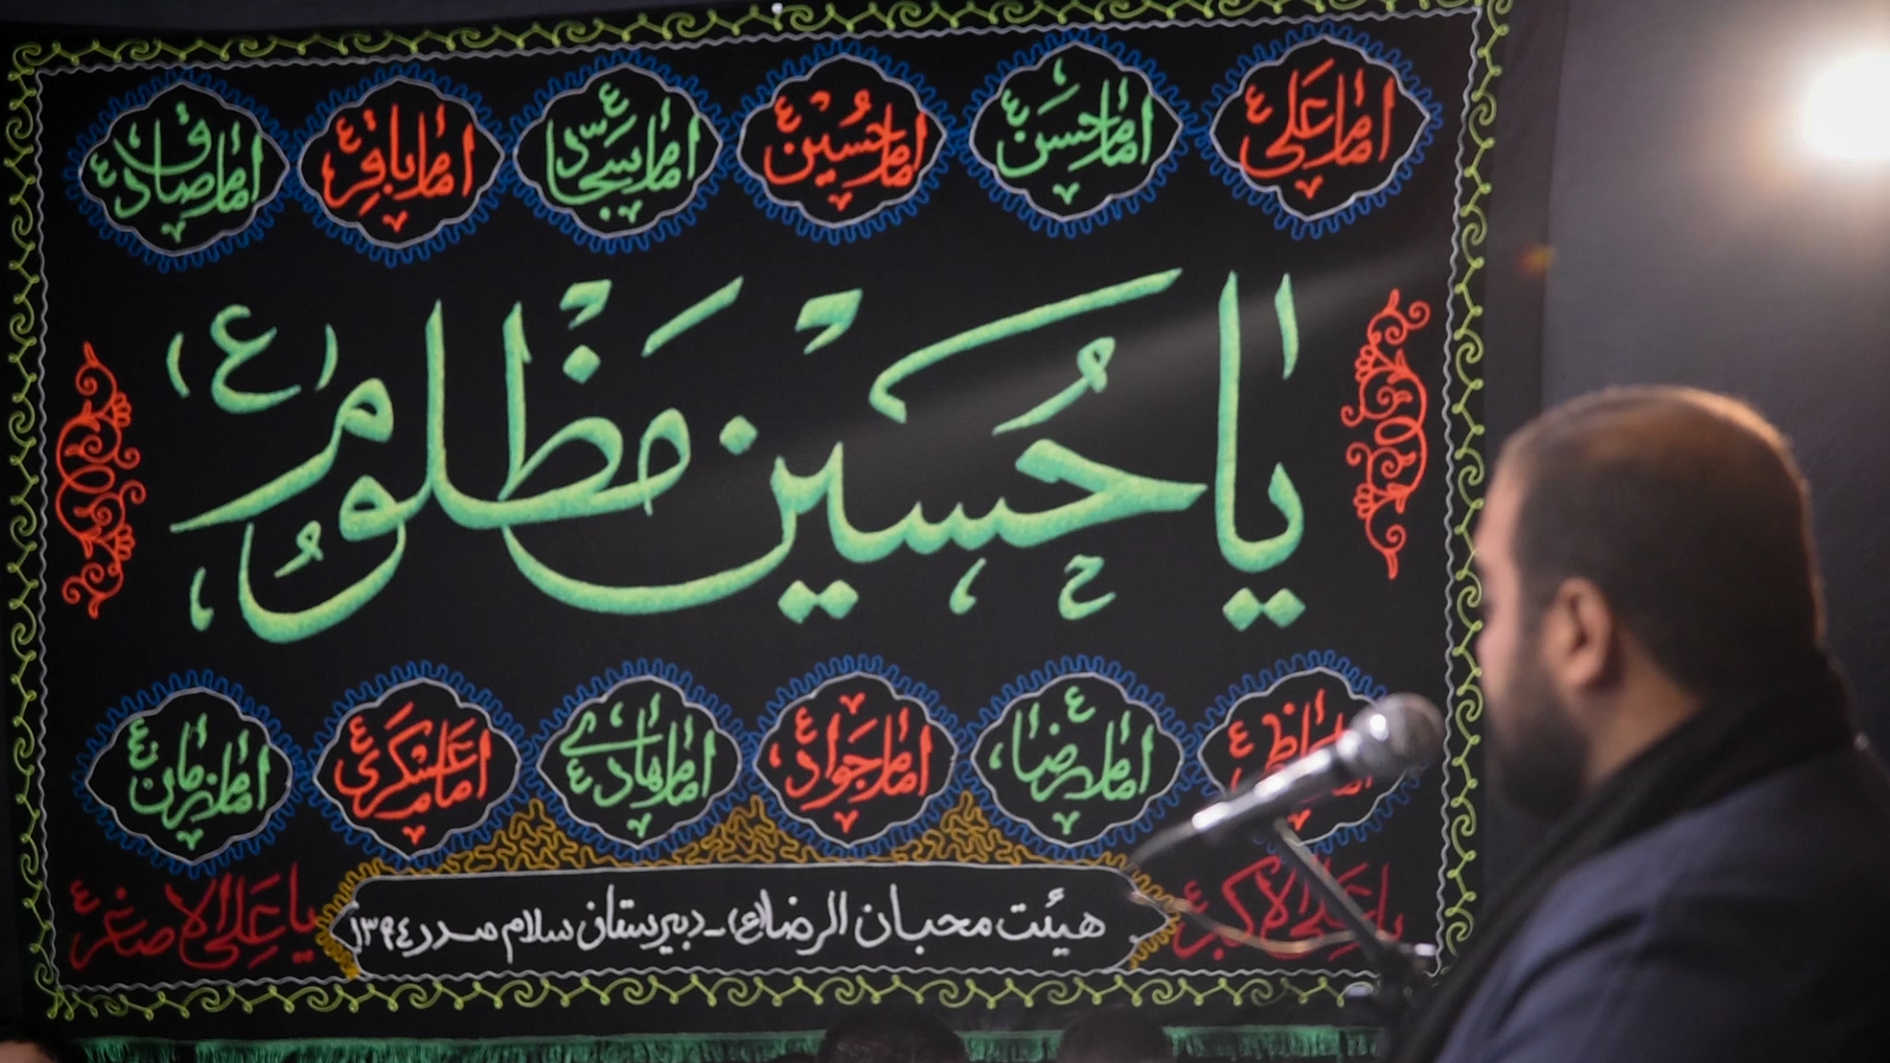 امام علی ع
امام حسن ع
امام حسین ع
امام سجاد ع
امام باقر ع
امام صادق ع
یا حسین مظلوم (ع)
امام کاظم ع
امام رضا ع
امام جواد ع
امام هادی ع
امام عسکری ع
امام زمان ع
یا علی الاکبر ع
هیئت محبان الرضا(ع) - دبیرستان سلام صدر ۱۳۹۴
یا علی الاصغر ع